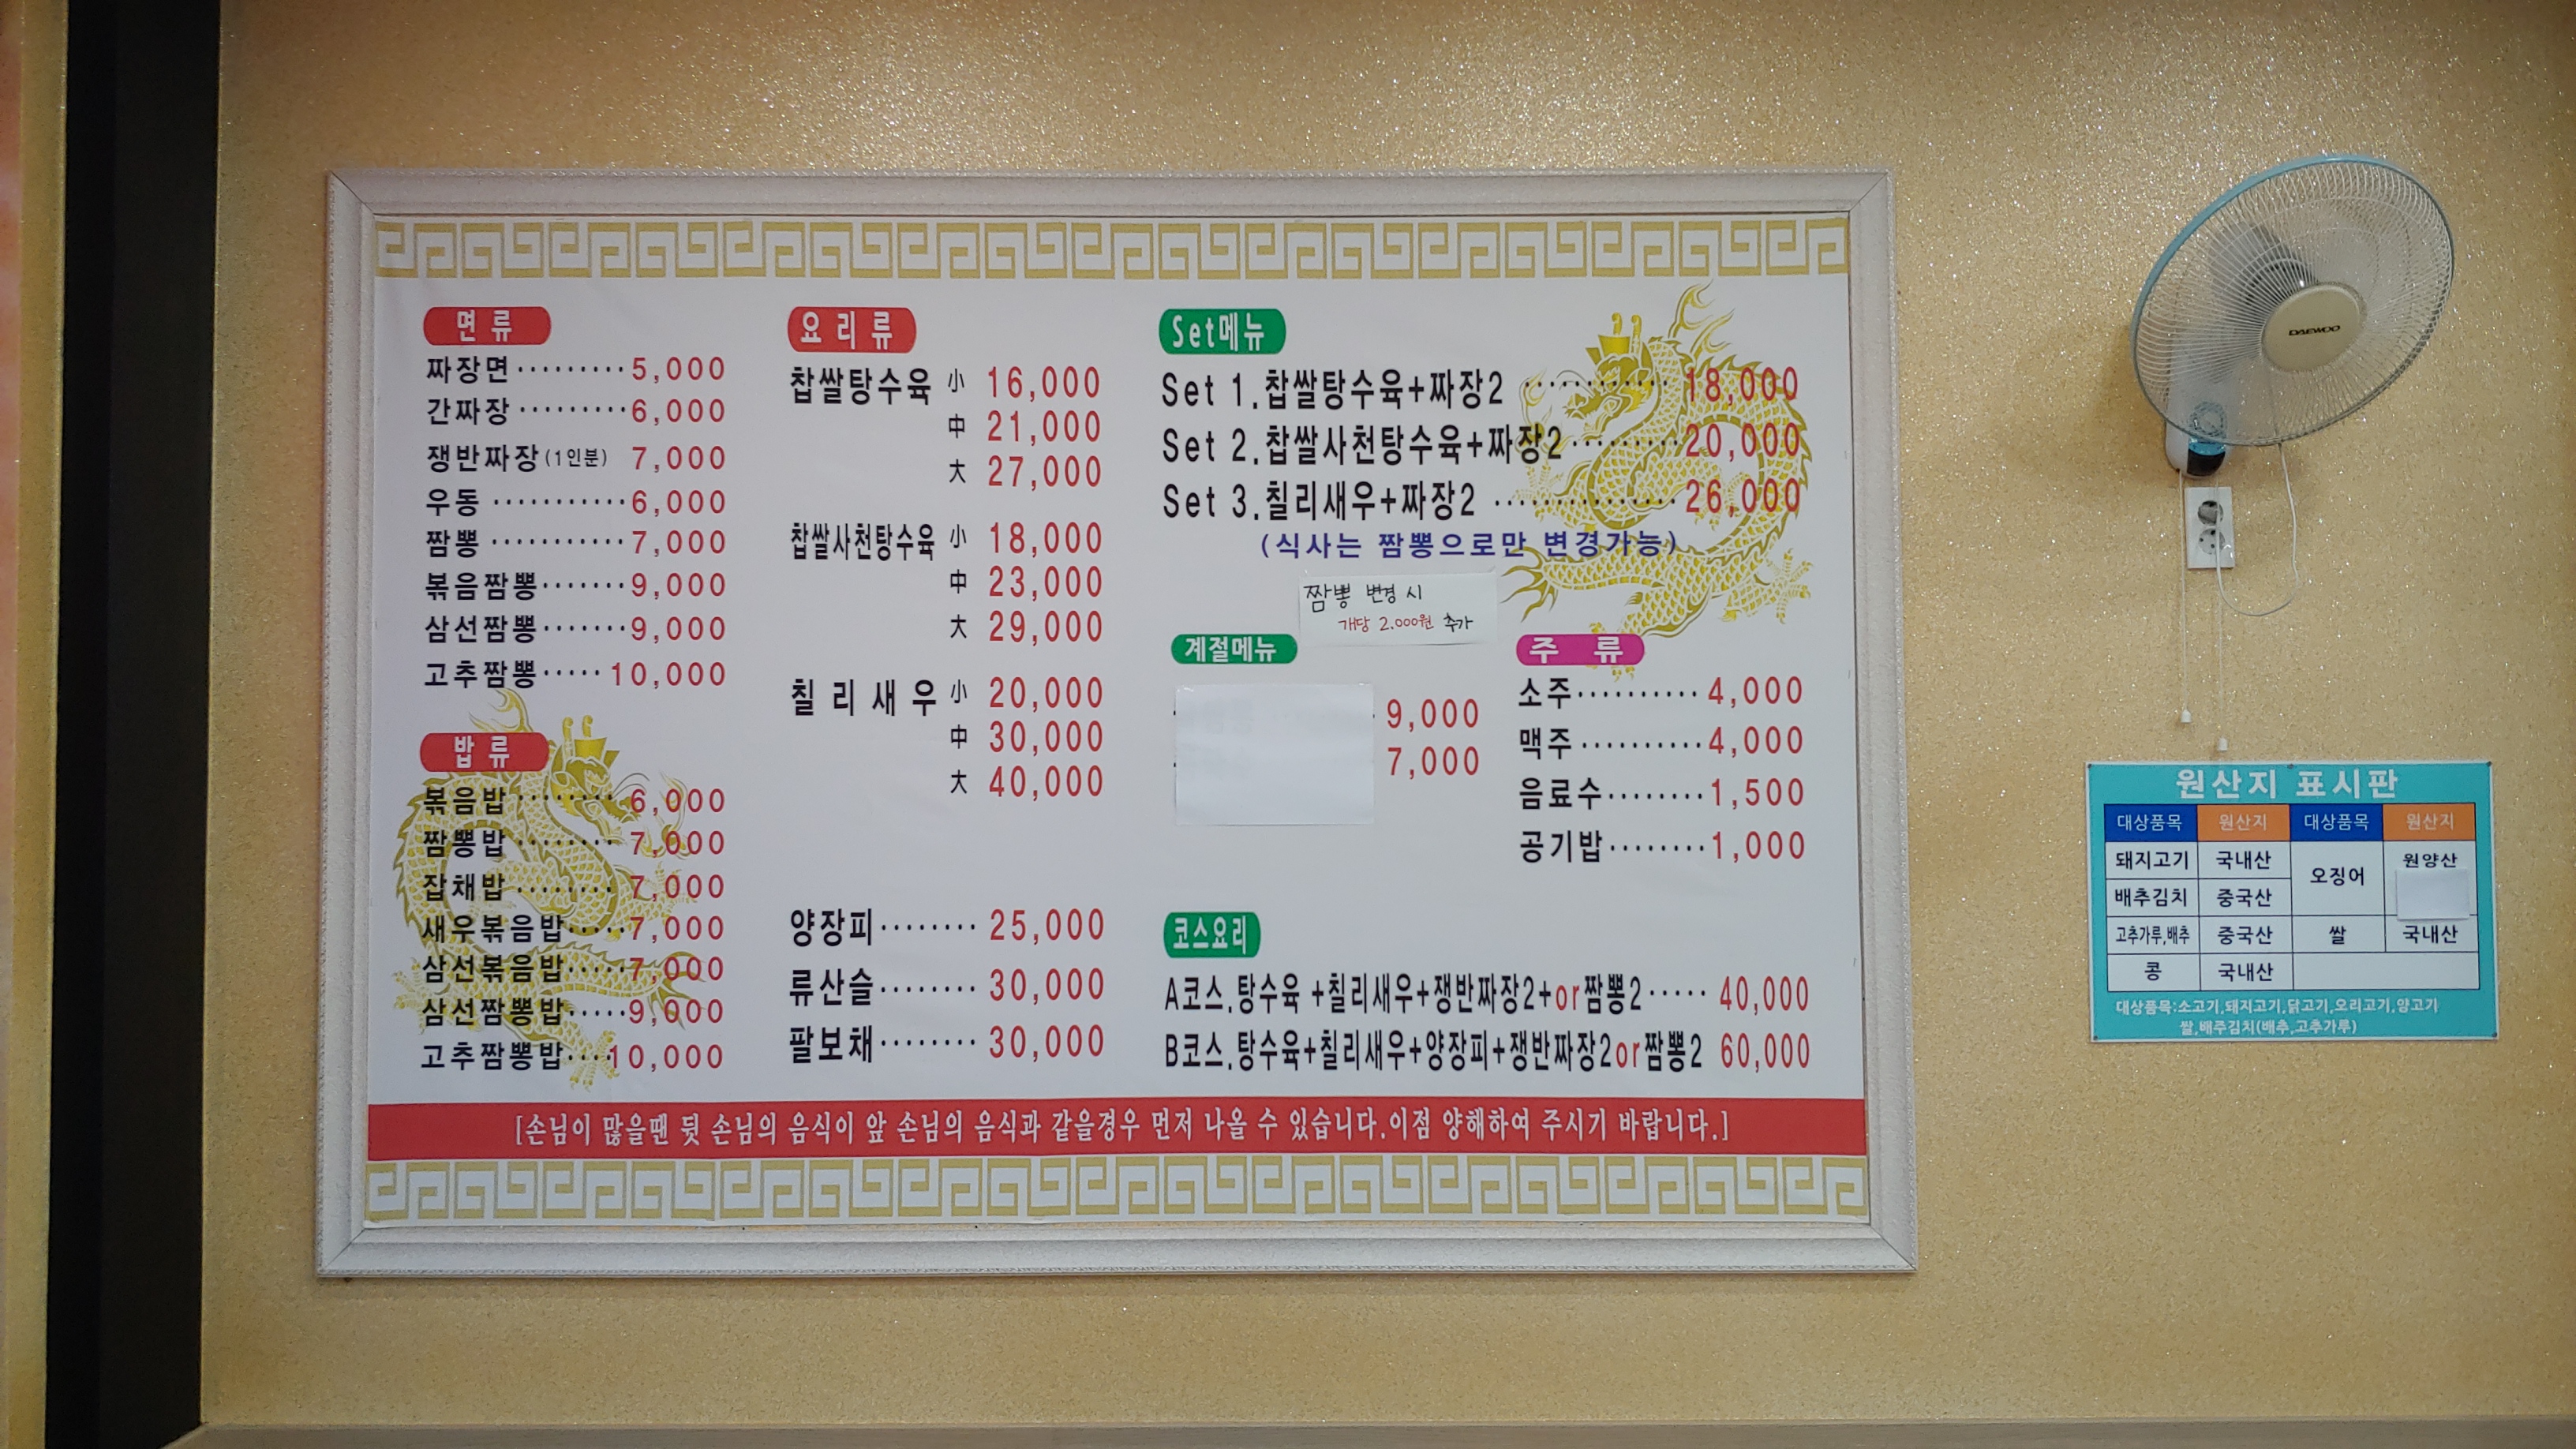 면류
짜장면 ········· 5,000
간짜장 ········· 6,000
쟁반짜장(1인분) 7,000
우동 ··········· 6,000
짬뽕 ··········· 7,000
볶음짬뽕 ······· 9,000
삼선짬뽕 ······· 9,000
고추짬뽕 ····· 10,000
밥류
볶음밥 ········ 6,000
짬뽕밥 ········ 7,000
잡채밥 ········ 7,000
새우볶음밥 ····· 7,000
삼선볶음밥 ····· 7,000
삼선짬뽕밥 ····· 9,000
고추짬뽕밥 ···· 10,000
요리류
찹쌀탕수육 小 16,000
中 21,000
大 27,000
찹쌀사천탕수육 小 18,000
中 23,000
大 29,000
칠리새우 小 20,000
中 30,000
大 40,000
양장피 ········ 25,000
류산슬 ········ 30,000
팔보채 ········ 30,000
Set메뉴
Set 1.찹쌀탕수육+짜장2 ············ 18,000
Set 2.찹쌀사천탕수육+짜장2 ········· 20,000
Set 3.칠리새우+짜장2 ·············· 26,000
(식사는 짬뽕으로만 변경가능)
짬뽕 변경 시
개당 2.000원 추가
계절메뉴
9,000
7,000
주 류
소주 ·········· 4,000
맥주 ·········· 4,000
음료수 ········ 1,500
공기밥 ········ 1,000
코스요리
A코스.탕수육 +칠리새우+쟁반짜장2+or짬뽕2 ····· 40,000
B코스.탕수육+칠리새우+양장피+쟁반짜장2or짬뽕2 60,000
[손님이 많을땐 뒷 손님의 음식이 앞 손님의 음식과 같을경우 먼저 나올 수 있습니다.이점 양해하여 주시기 바랍니다.]
DAEWOO
원산지 표시판
대상품목 원산지 대상품목 원산지
돼지고기 국내산 오징어 원양산
배추김치 중국산
고추가루,배추 중국산 쌀 국내산
콩 국내산
대상품목:소고기,돼지고기,닭고기,오리고기,양고기
쌀,배추김치(배추,고추가루)